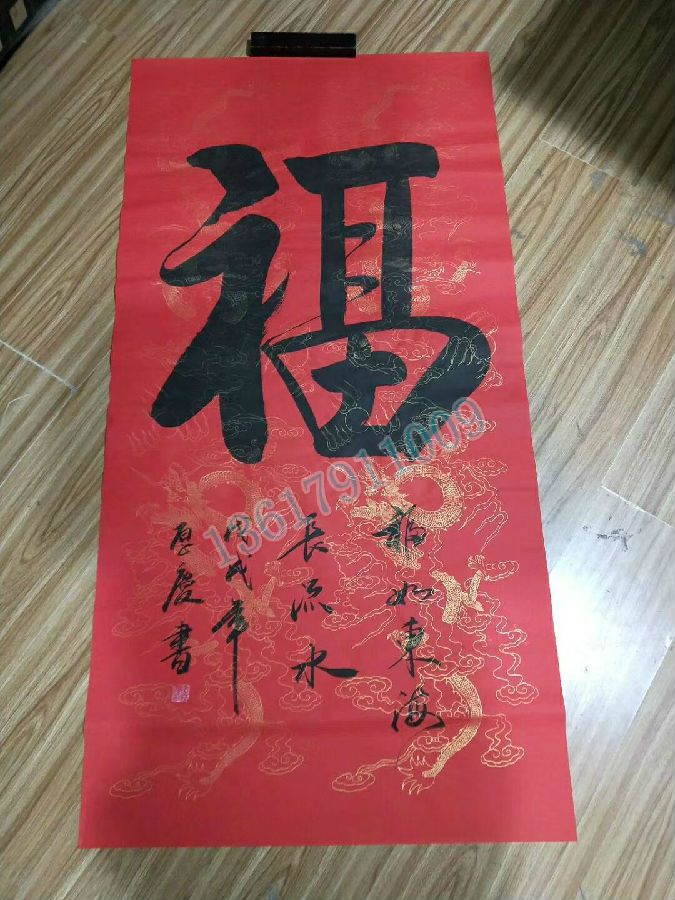 福
福如東海
長流水
戊戌年
厚慶書
13617911009